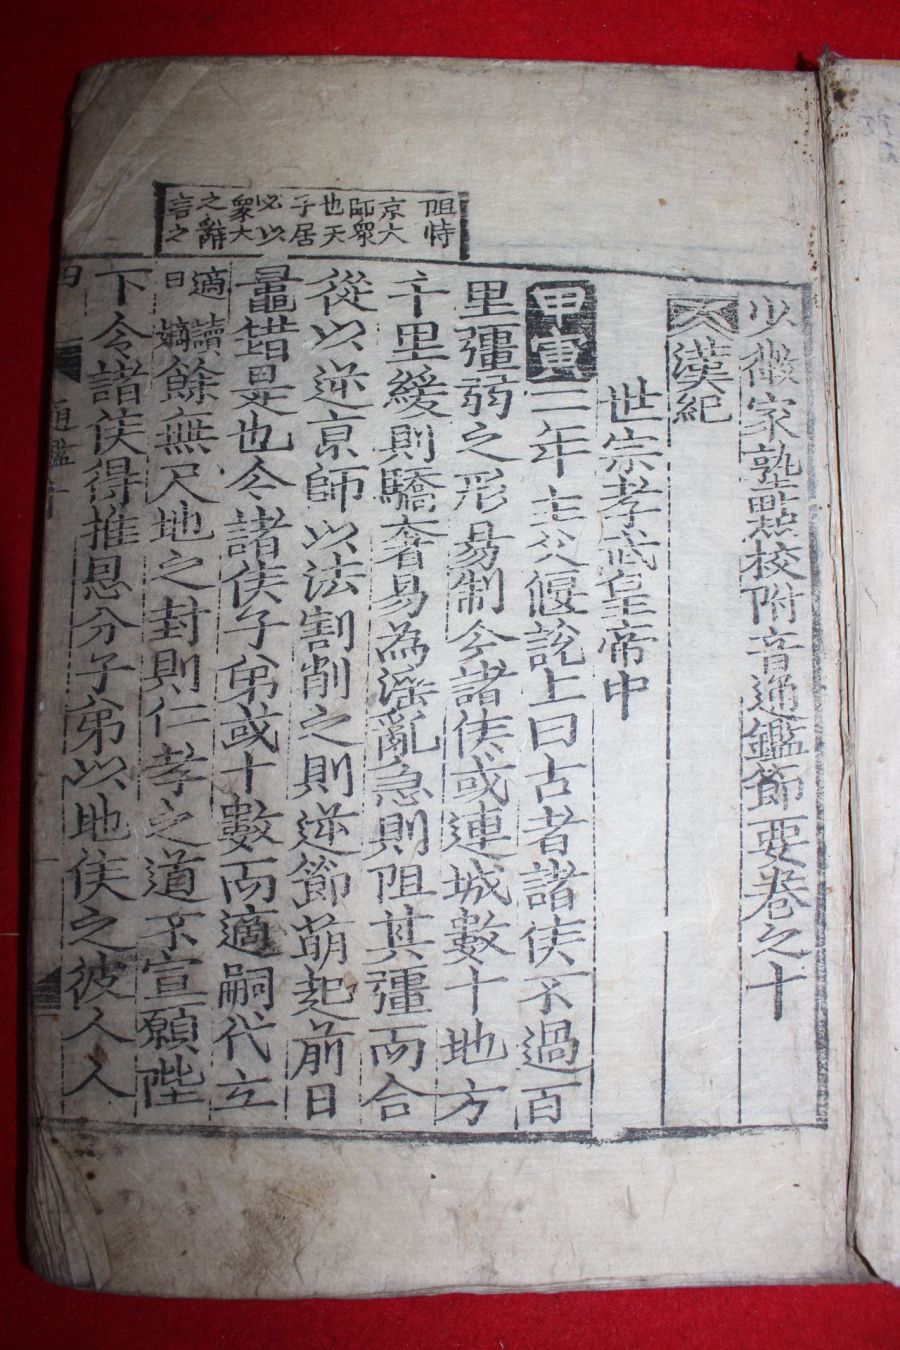 阻恃
京大
師眾
也天
子居
必以
眾大
之辭
言之
少微家塾點校附音通鑑節要卷之十
漢紀
世宗孝武皇帝中
甲寅二年主父偃說上曰古者諸侯不過百
里彊弱之形易制今諸侯或連城數十地方
千里緩則驕奢易為淫亂急則阻其彊而合
從以逆京師以法割削之則逆節萌起前日
鼂錯是也今諸侯子弟或十數而適嗣代立
適讀曰嫡餘無尺地之封則仁孝之道不宣願陛
下令諸侯得推恩分子弟以地侯之彼人人